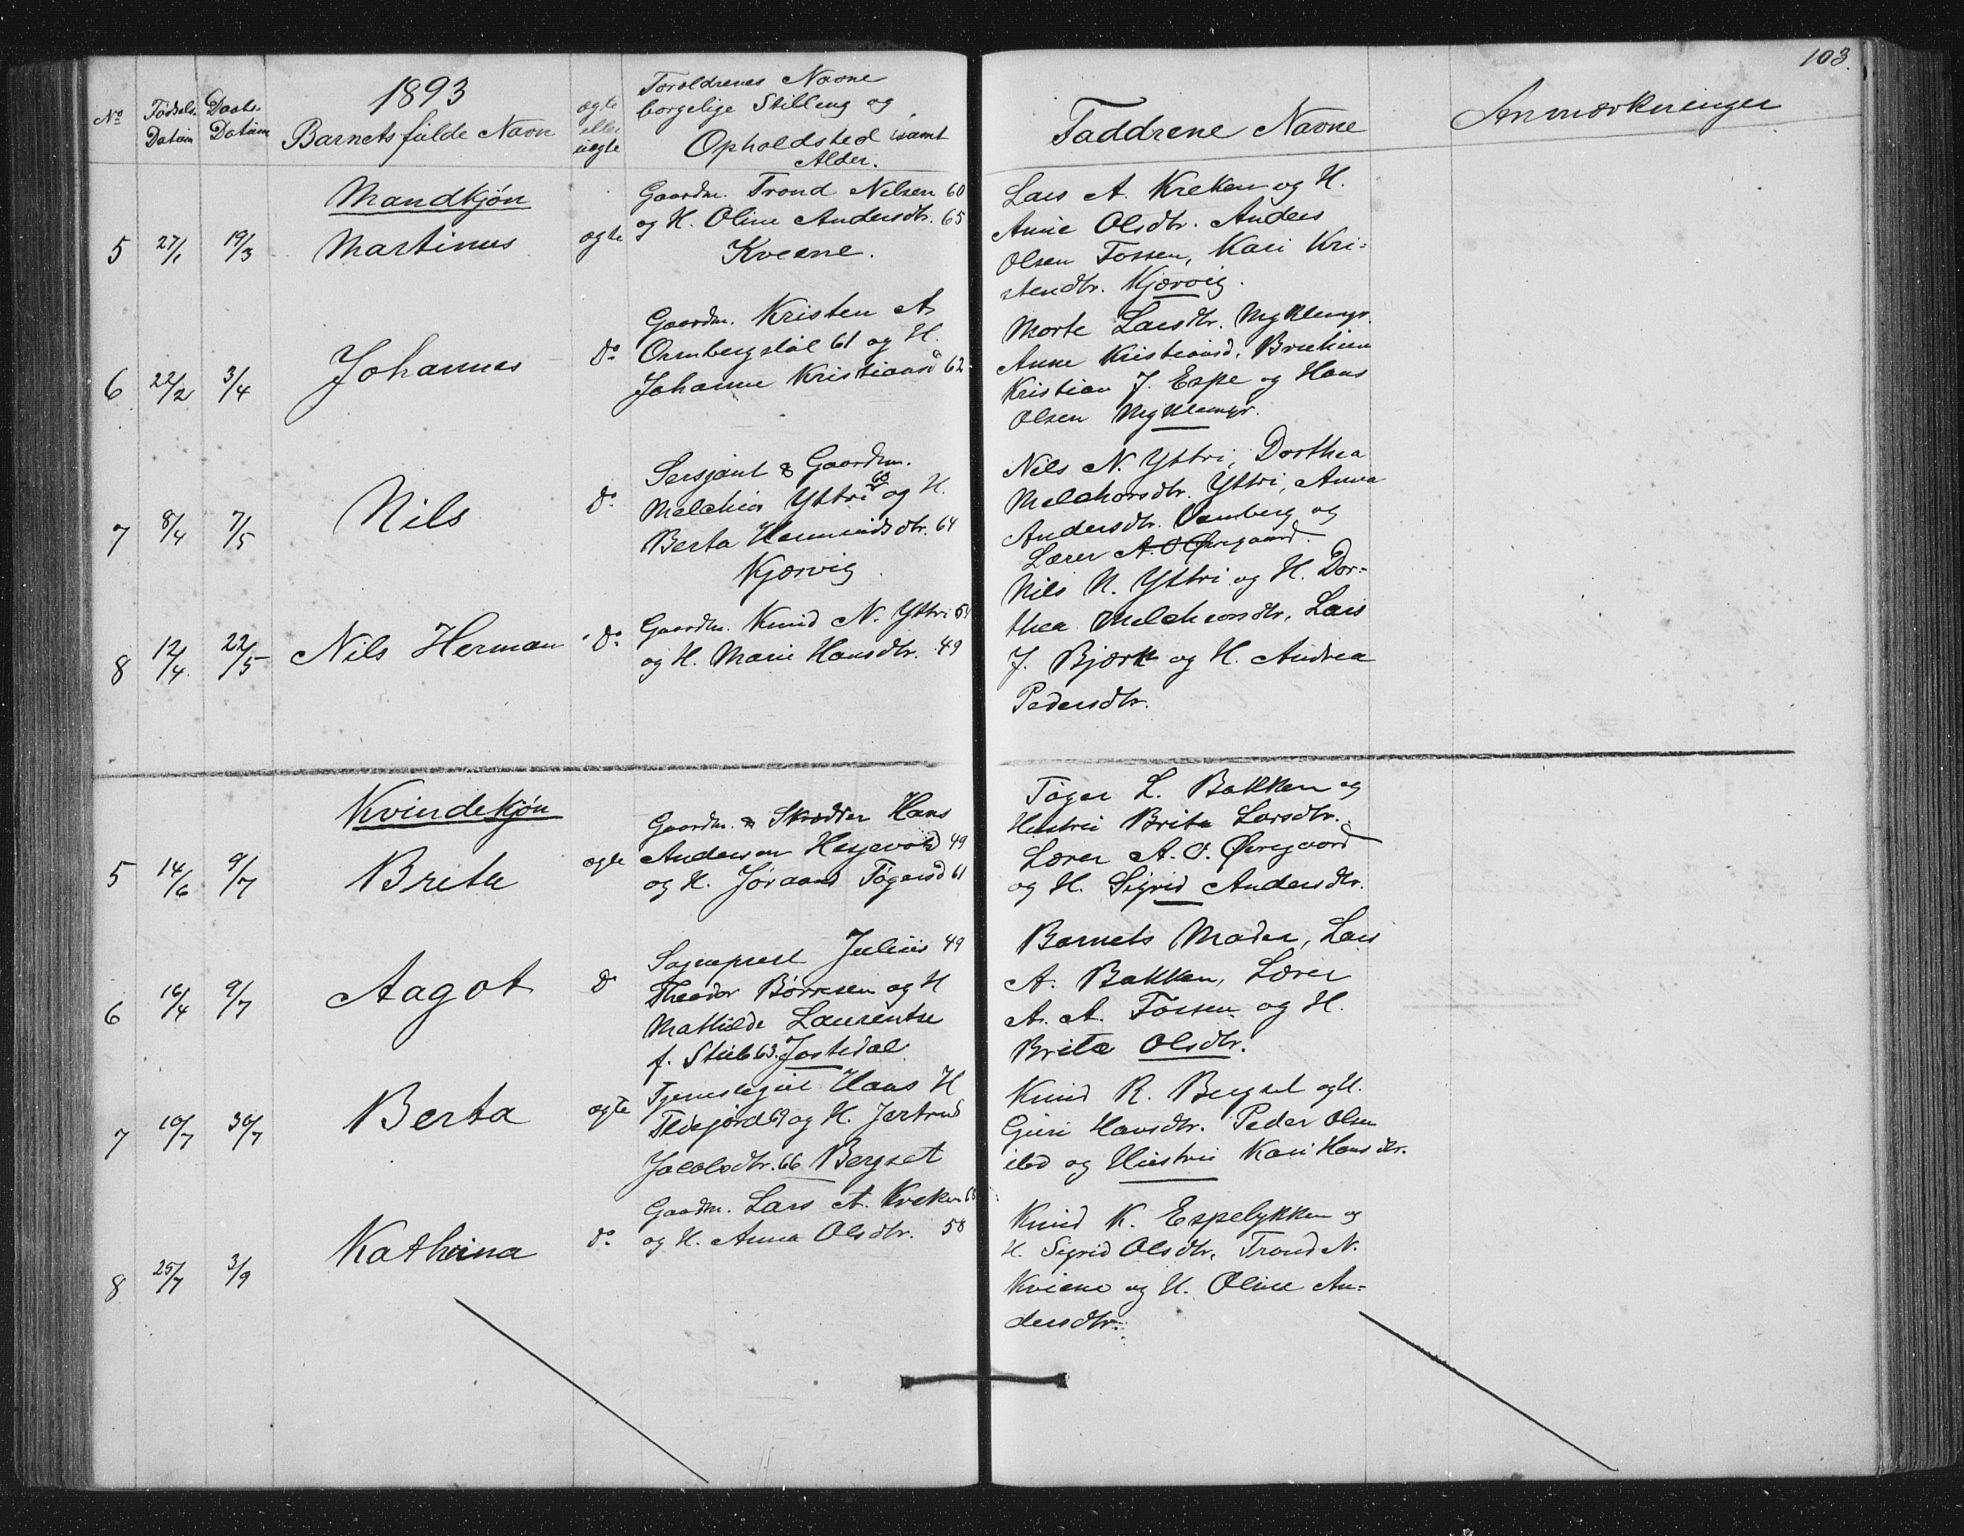 103.
No
Fødsels Datum
Daabs. Datum
1893
Barnets fulde Navn
ægte eller uægte
Foreldrenes Navne
borgelige Stilling og
Opholdsted samt
Alder.
Faddrene Navne
Anmærkninger
Mandkjøn
5 27/1 19/3 Martinus ægte
Gaardm. Trond Nilsen 60
og H. Oline Andersdtr. 65
Kveene.
Lars A. Kreken og H.
Anne Olsdtr. Anders
Olsen Fossen, Kari Kri-
stendtr. Kjærvig.
6 22/2 3/4 Johannes Do
Gaardm. Kristen A.
Ormbergstøl 61 og H.
Johanne Kristiansd 62
Marte Larsdtr. Myklemyr.
Anne Kristiansd,
Kristian J. Espe og Hans
Olsen Myklemyr.
7 8/4 7/5 Nils Do
Sersjant & Gaardm.
Melchior Yttri 60 og H.
Berta Hermundsdtr. 64
Kjærvig
Nils N. Yttri, Dorthea
Melchorsdtr. Yttri, Anna
Andersdtr. Ormberg og
Lærer A. O Øvregaard.
8 12/4 22/5 Nils Herman Do
Gaardm. Knud N. Yttri
og H. Marie Hansdtr. 49
Nils N. Yttri og H. Dor-
thea Melchiorsdtr, Lars
J. Bjørk og H. Andrea
Pedersdtr.
Kvindekjøn
5 14/6 9/7 Brita ægte
Gaardm. & Skrædder Hans
Andersen Heljevold 49
og H. Jøraand Tøgersd 61
Tøger L. Bakken og
Hustru Brita Larsdtr.
Lærer A. O. Øvregaard
og H. Sigrid Andersdtr.
6 16/4 9/7 Aagot Do
Sogneprest Julius 49
Theodor Børresen og H
Mathilde Laurentze
f. Stub 63. Jostedal
Barnets Moder, Lars
A. Bakken, Lærer
A. A. Fossen og H.
Brita Olsdtr.
7 10/7 30/7 Berta ægte
Tjenestegut Hans H
og H. Jertrud
Jacobsdtr. 66 Bergset
Knud R. Bergset og H.
Guri Hansdtr. Peder Olsen
ibd og Hustru Kari Hansdtr.
8 25/7 3/9 Kathrina Do
Gaardm. Lars A. Kreken
og H. Anna Olsdtr. 58
Knud K. Espelykken og
H. Sigrid Olsdtr, Trond N.
Kviene og H. Oline An-
dersdtr.